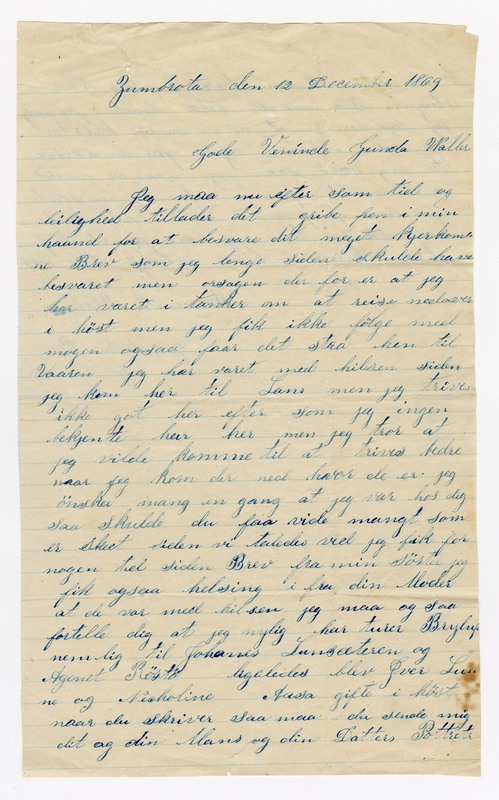 Zumbrota den 12 December 1869
Gode Veninde Gunda Waller
Jeg maa nu efter som tid og
leilighed tillader det gribe pen i min
haand for at besvare dit meget kjerkom
ne Brev som jeg lenge siden skulde have
besvaret men orsagen der for er at jeg
har været i tanker om at reise nedover
i höst men jeg fik ikke følge med
nogen ogsaa faar det staa hen til
Vaaren jeg har været med hilsen siden
jeg kom her til Lans men jeg trives
ikke got her efter som jeg ingen
bekjente har her men jeg tror at
jeg vilde komme til at trives bedre
naar jeg kom der ned hvor de er jeg
önsker mang en gang at jeg var hos dig
saa skulde du faa vide mangt som
er skeet siden vi taledes ved jeg fik for
nogen tid siden Brev fra min Söster jeg
fik ogsaa helsing i fra din Moder
at de var med hilsen jeg maa og saa
fortelle dig at jeg nylig har Brylup
nemlig til Johanes og
Agenet ligeledes blev Iver Lun
ne og gifte i höst
naar du skriver saa maa du sende mig
dit og din Mans og din Datters Pottret